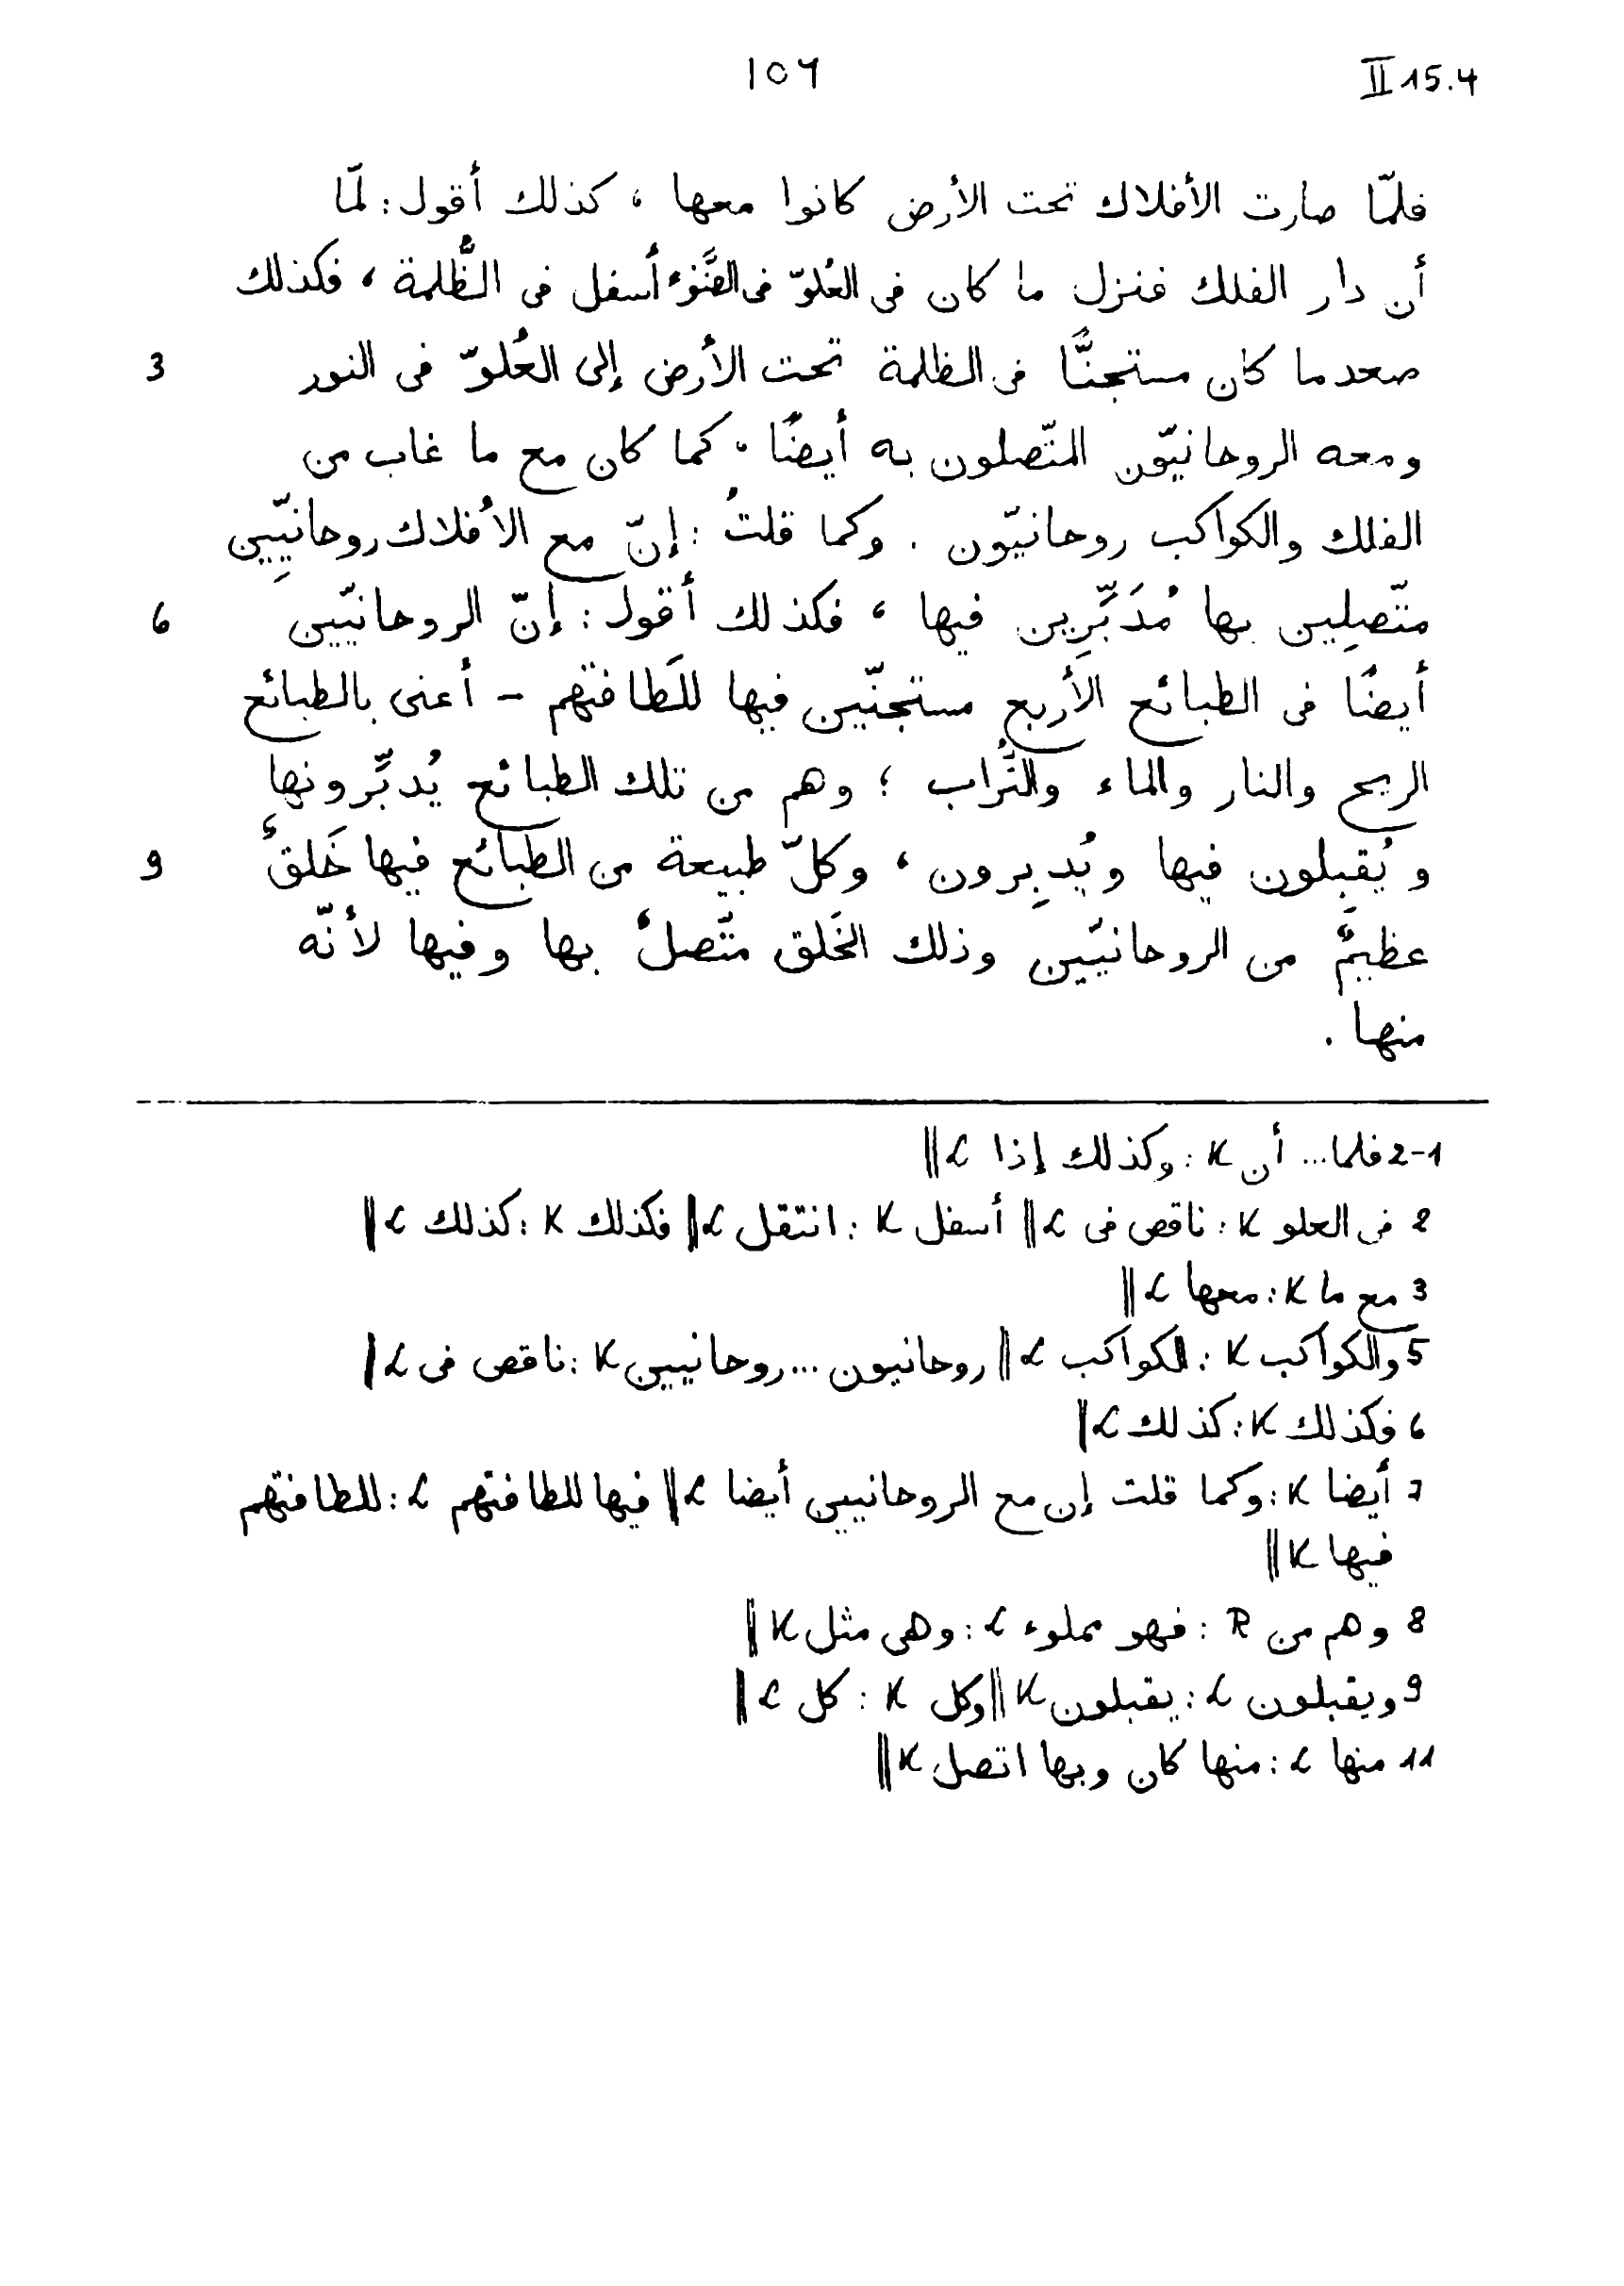 ١٥٦
II 15.4
فلمّا صارت الأفلاك تحت الأرض كانوا معها ، كذلك أقول : لمّا
أن دار الفلك فنزل ما كان فى العُلوّ فى الضَّوْء أسفل فى الظُّلمة ، فكذلك
صعد ما كان مستجنًّا فى الظلمة تحت الأرض إلى العُلوّ فى النور 3
ومعه الروحانيّون المتّصلون به أيضًا . كما كان مع ما غاب من
الفلك والكواكب روحانيّون . وكما قلتُ : إنّ مع الأفلاك روحانيّيِين
متّصلِين بها مُدَبِّرِين فيها ، فكذلك أقول : إنّ الروحانيّيين 6
أيضًا فى الطبائع الأربع مستجنّين فيها للَطافتهم – أعنى بالطبائع
الريح والنار والماء والتُّراب ؛ وهم من تلك الطبائع يُدبِّرونها
ويُقبِلون فيها ويُدبِرون ، وكلّ طبيعة من الطبائع فيها خَلقٌ 9
عظيمٌ من الروحانيّين وذلك الخَلق متّصلٌ بها وفيها لأنّه
منها .
1-2 فلما... أن K : وكذلك إذا L ||
2 فى العلو K : ناقص فى L || أسفل K : انتقل L || فكذلك K : كذلك L ||
3 مع ما K : معها L ||
5 والكواكب K : الكواكب L || روحانيون ... روحانييين K : ناقص فى L ||
6 فكذلك K : كذلك L ||
7 أيضا K : وكما قلت إن مع الروحانييين أيضا L || فيها للطافتهم L : للطافتهم
فيها K ||
8 وهم من R : فهو مملوء L : وهى مثل K ||
9 ويقبلون L : يقبلون K || وكل K : كل L ||
11 منها L : منها كان وبها اتصل K ||